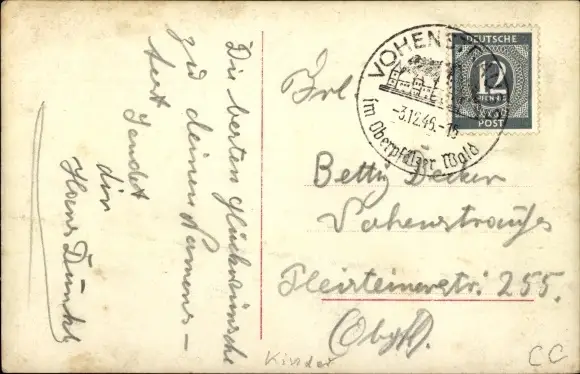 Die besten Glückwünsche
zu deinem Namens-
fest sendet
dir
Hans Dunkl
VOHENSTRAUSS
-3.12.46.-15
im Oberpfälzer Wald
DEUTSCHE
12
PFENNIG
POST
Frl
Betty Decker
Vohenstrauß
Pleisteinerstr. 255.
(Obpf).
Kinder
CC